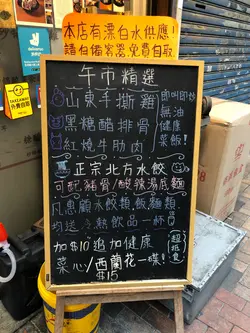 本店有漂白水供應！
請自備容器，免費自取
deliveroo
午市精選
山東手撕雞
黑糖醋排骨
紅燒牛肋肉
即叫即炒
無油
健康
菜飯！
正宗北方水餃
可配豬骨/酸辣湯底麵
凡惠顧水餃類，飯麵類
均送冷熱飲品一杯
加$10追加健康
菜心/西蘭花一碟！
$15